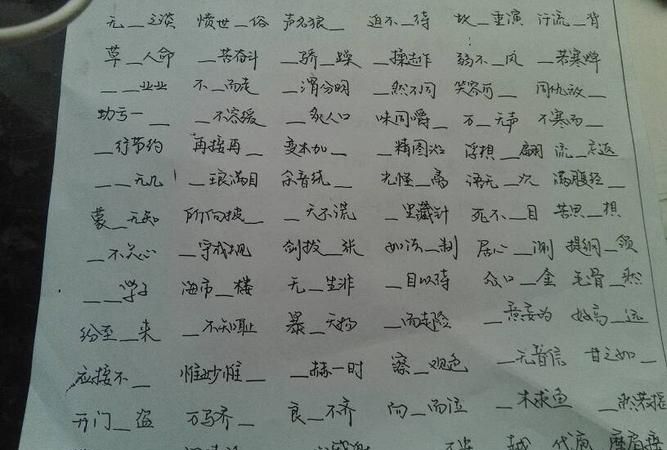 无__之谈 愤世__俗 声名狼__ 迫不__待 故__重演 汗流__背
草__人命 __苦奋斗 __骄__躁 __操起作 弱不__风 __若寒蝉
____业业 不__而走 __渭分明 __然不同 笑容可__ 同仇敌__
功亏一__ __不容缓 __炙人口 味同嚼__ 万__无声 不寒而__
__行节约 再接再__ 变本加__ __精图治 浮想__翩 流__忘返
____无几 __琅满目 余音绕__ 光怪__离 语无__次 满腹经__
蒙__无知 所向披__ __天不谎 __里藏针 死不__目 苦思__想
__不关心 __守成规 剑拔__张 如法__制 居心__测 提纲__领
____学子 海市__楼 无__生非 __目以待 众口__金 毛骨__然
纷至__来 __不知耻 暴__天物 __而走险 __意妄为 好高__远
应接不__ 惟妙惟__ __赫一时 察__观色 __无音信 甘之如__
开门__盗 万马齐__ 良__不齐 向__而泣 __木求鱼 __然若揭